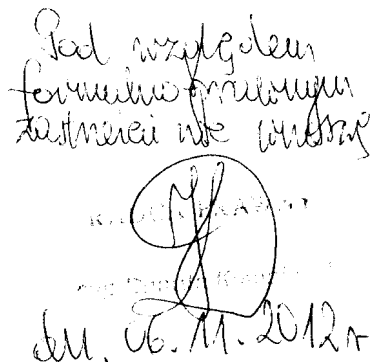 Pod względem
formalno prawnym
zastrzeżeń nie wnoszę
dn. 06.11.2012r